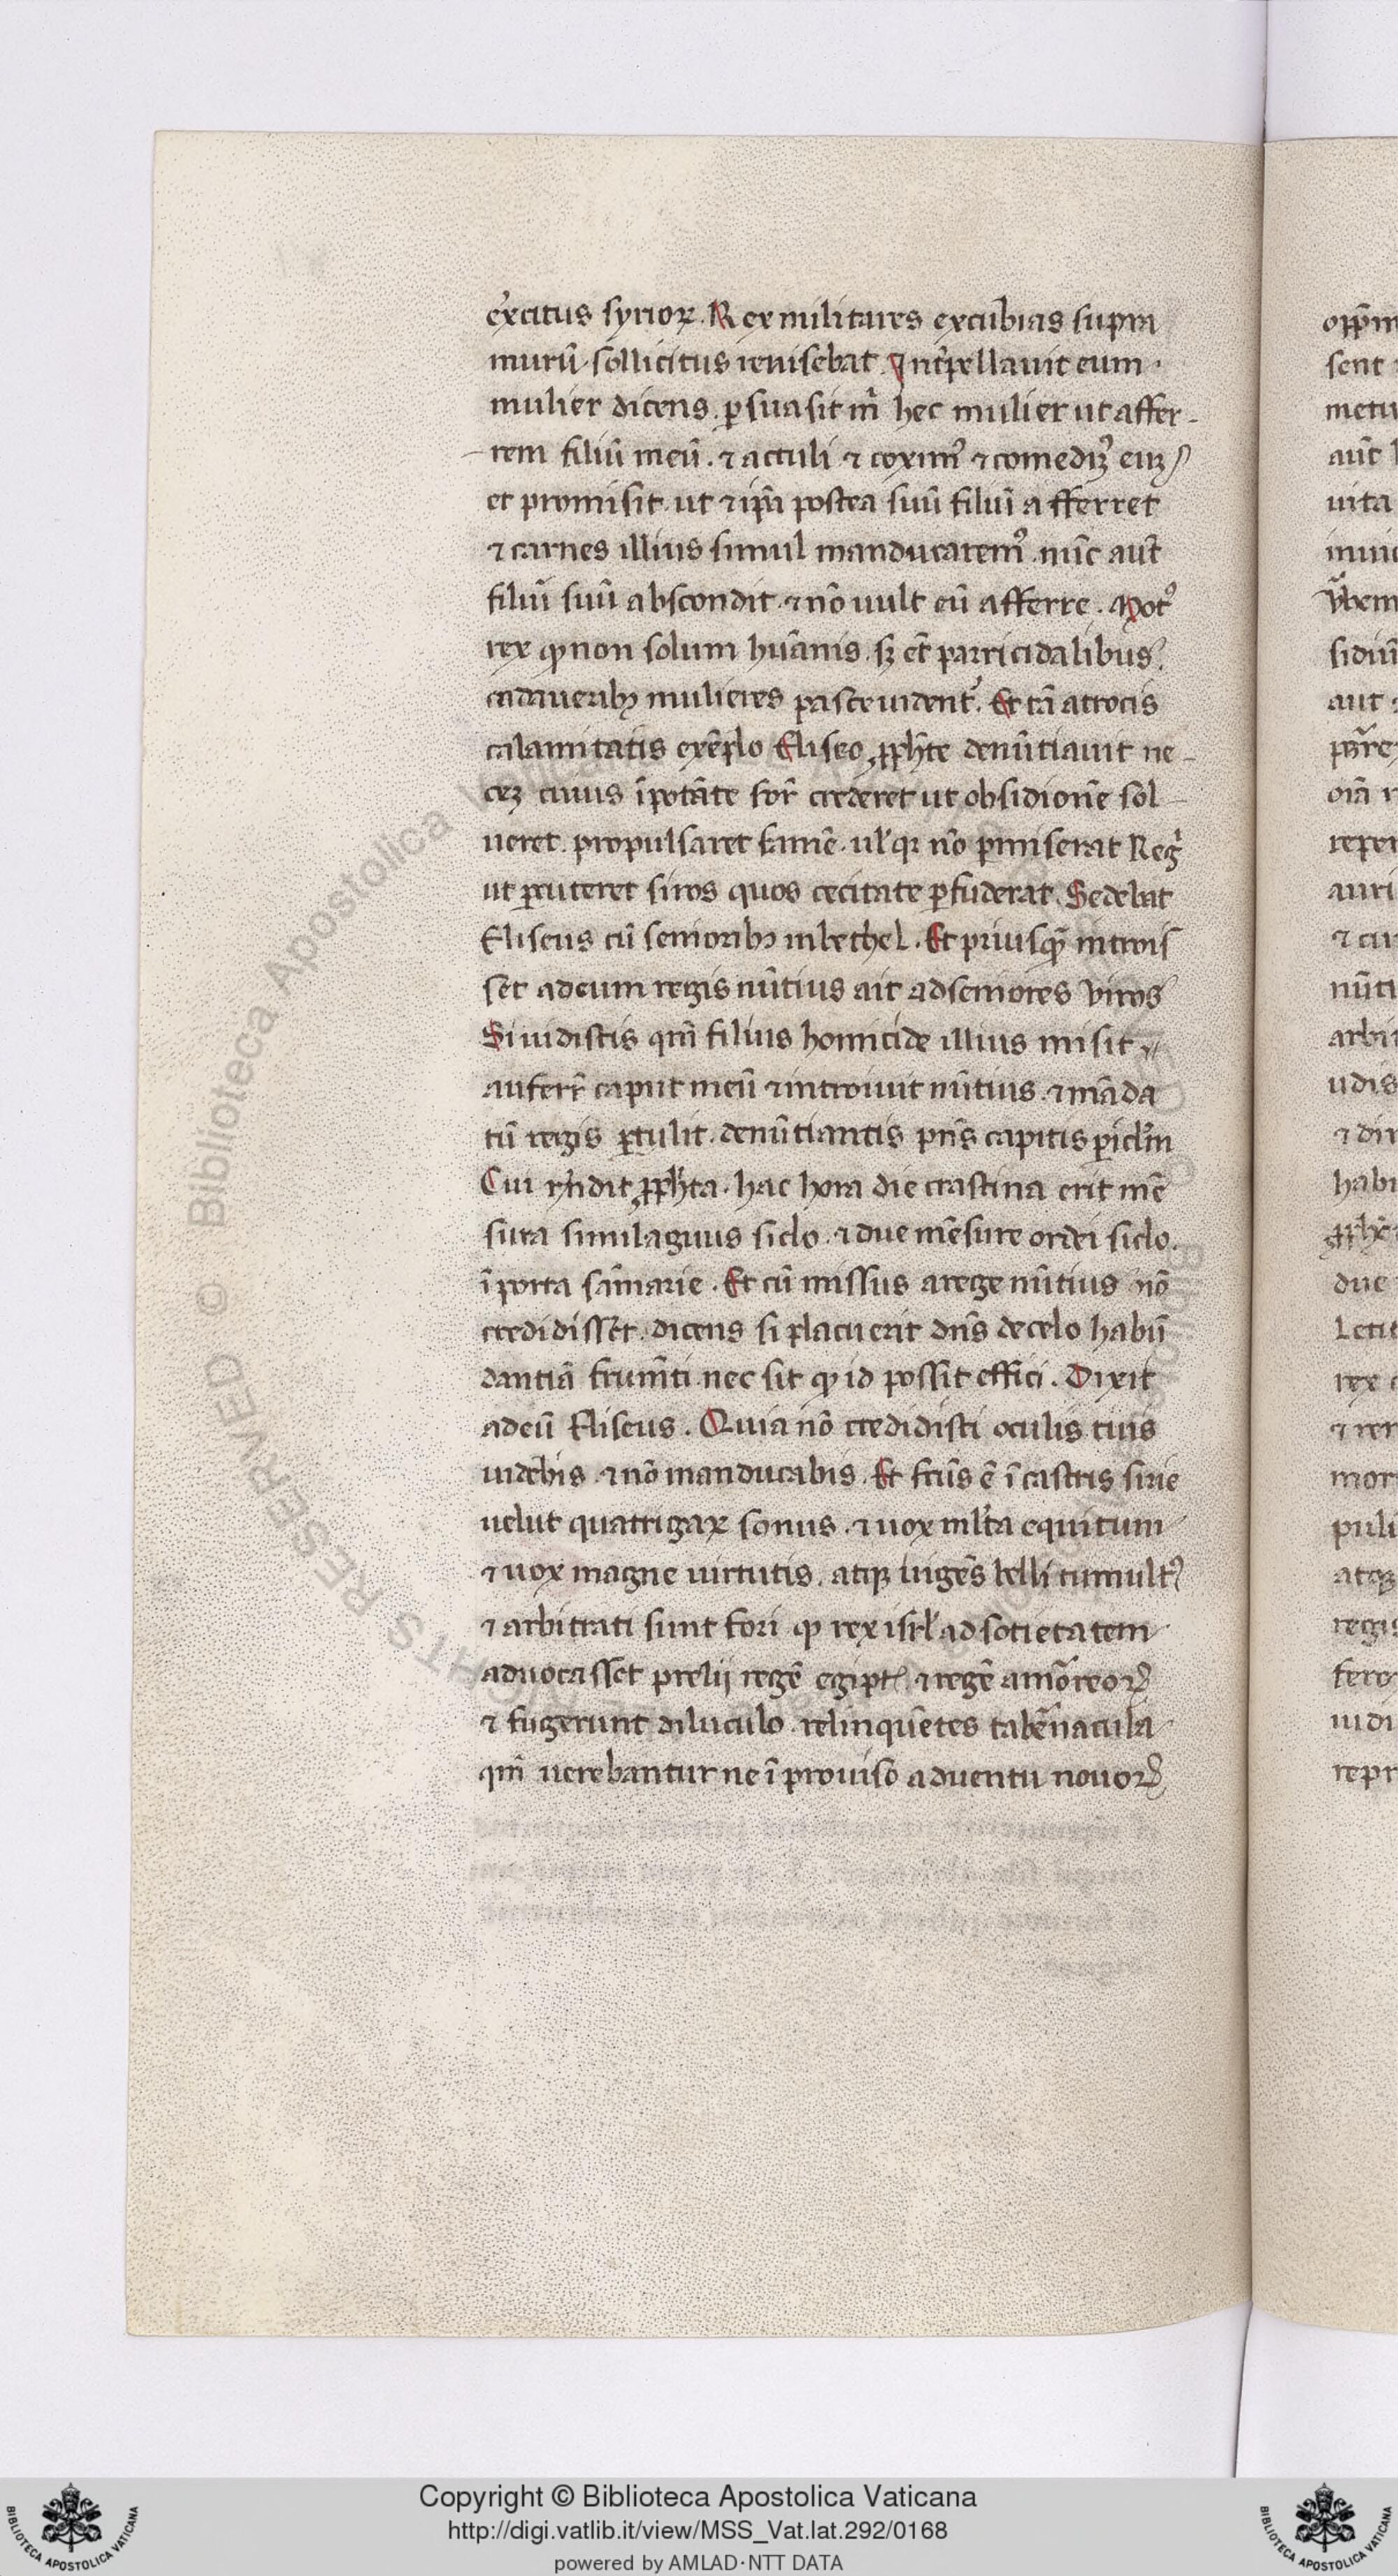 exꝰcitus syrioꝝ. Rex militares excubias supra
murū sollicitus reuisebat. Int̄pellauit eum
mulier dicens. ꝑsuasit m̄ hec mulier ut affer-
-rem filiū meū. ⁊ attuli ⁊ coximꝰ ⁊ comedimꝰ eū
et promisit ut ⁊ ip̄a postea suū filiū afferret
⁊ carnes illius simul manducaremꝰ. nūc aut̄
filiū suū abscondit ⁊ nō uult eū afferre. Motꝰ
rex ꝙ non solum hūanis sꝫ et̄ parricidalibus
cadaueribꝫ mulieres pasce uident̄. Et tā atrocis
calamitatis exēplo Eliseo ꝓph̄te denūtiauit ne-
cez cuius ī potāte for̄ crederet ut obsidionē sol-
ueret. propulsaret famē. ul̓ qꝛ nō pmiserat Regi
ut ꝑcuteret siros quos cecitate ꝑfuderat. Sedebat
Eliseus cū senioribꝫ in bethel. Et priusqꝫ introis
set ad eum regis nūtius ait ad seniores viros
Si uidistis qm̄ filius homicide illius misit
auferr̄ caput meū ⁊ introiuit nūtius. ⁊ māda
tū regis ꝑtulit. denūtiantis pn̄s capitis ꝑicl̄m
Cui rn̄dit ꝓph̄ta. hac hora die crastina erit mē
sura similaginis siclo. ⁊ due mēsure ordei siclo.
ī porta sam̄arie. Et cū missus a rege nūtius nō
credidisset. dicens si placuerit dn̄s de celo habū
dantiā frum̄ti nec sit ꝙ id possit effici. Dixit
ad eū Eliseus. Quia nō credidisti oculis tuis
uidebis ⁊ nō manducabis. Et fcūs ē ī castris sirie
uelut quatrigaꝝ sonus. ⁊ uox ml̄ta equitum
⁊ uox magne uirtutis. atqꝫ īigēs belli tumultꝰ
⁊ arbitrati sunt fori ꝙ rex isrl̓ ad societatem
aduocasset prelij regē egipti ⁊ regē amōreoꝝ
⁊ fugerunt diluculo relinquētes tabēnacula
qm̄ uerebantur ne ī prouiso aduentu nouoꝝ
Copyright © Biblioteca Apostolica Vaticana
http://digi.vatlib.it/view/MSS_Vat.lat.292/0168
powered by AMLAD·NTT DATA